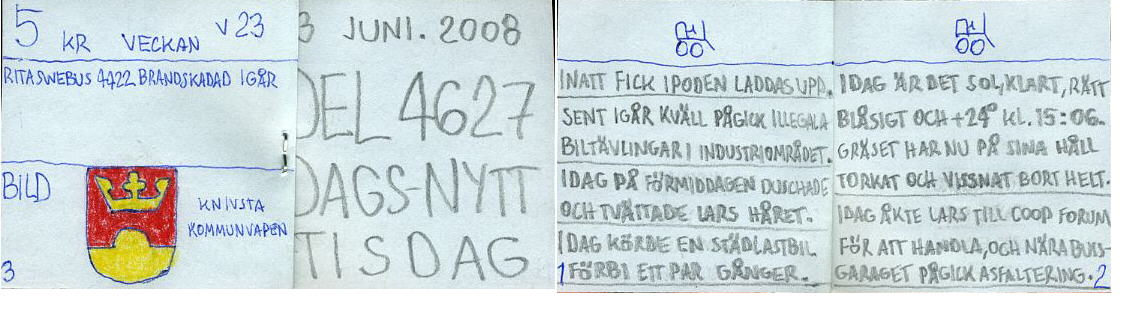 5 KR VECKAN V 23
RITASWEBUS 4422 BRANDSKADAD IGÅR
BILD
KNIVSTA
KOMMUNVAPEN
3
3 JUNI. 2008
DEL 4627
DAGS-NYTT
TISDAG
INATT FICK IPODEN LADDAS UPP.
SENT IGÅR KVÄLL PÅGICK ILLEGALA
BILTÄVLINGAR I INDUSTRIOMRÅDET.
IDAG PÅ FÖRMIDDAGEN DUSCHADE
OCH TVÄTTADE LARS HÅRET.
IDAG KÖRDE EN STÄDLASTBIL
FÖRBI ETT PAR GÅNGER.
1
IDAG ÄR DET SOL, KLART, RÄTT
BLÅSIGT OCH +24° KL. 15:06.
GRÄSET HAR NU PÅ SINA HÅLL
TORKAT OCH VISSNAT BORT HELT.
IDAG ÅKTE LARS TILL COOP FORUM
FÖR ATT HANDLA, OCH NÄRA BUSS-
GARAGET PÅGICK ASFALTERING.
2